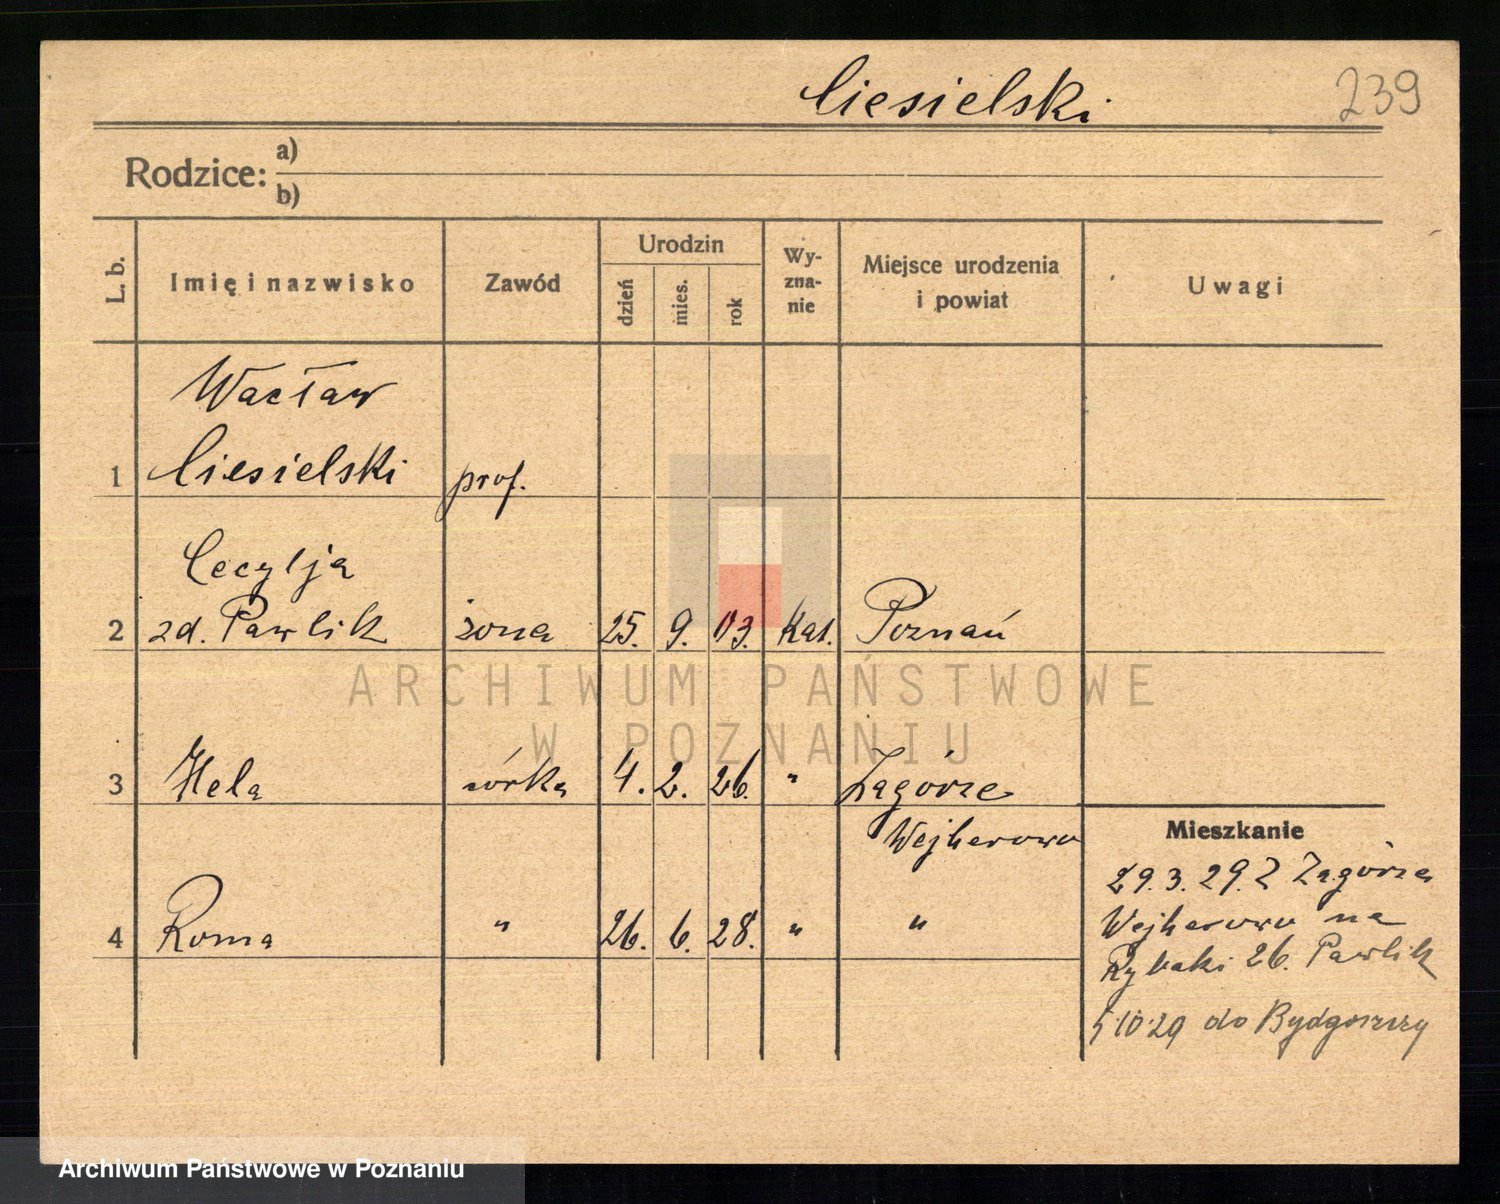 Ciesielski
239
Rodzice: a)
b)
L. b.
Imię i nazwisko
Zawód
Urodzin
dzień
mies.
rok
Wy-
zna-
nie
Miejsce urodzenia
i powiat
Uwagi
Wacław
1 Ciesielski prof.
Cecylja
2 zd. Pawlik żona 25. 9. 03. Kat. Poznań
ARCHIWUM PAŃSTWOWE
W POZNANIU
3 Hela córka 4. 2. 26. " Zagórze
Wejherowo
4 Roma " 26. 6. 28. " "
Mieszkanie
29.3.29. Z Zagórza
Wejherowo na
Rybaki 26. Pawlik
5.10.29 do Bydgoszczy
Archiwum Państwowe w Poznaniu